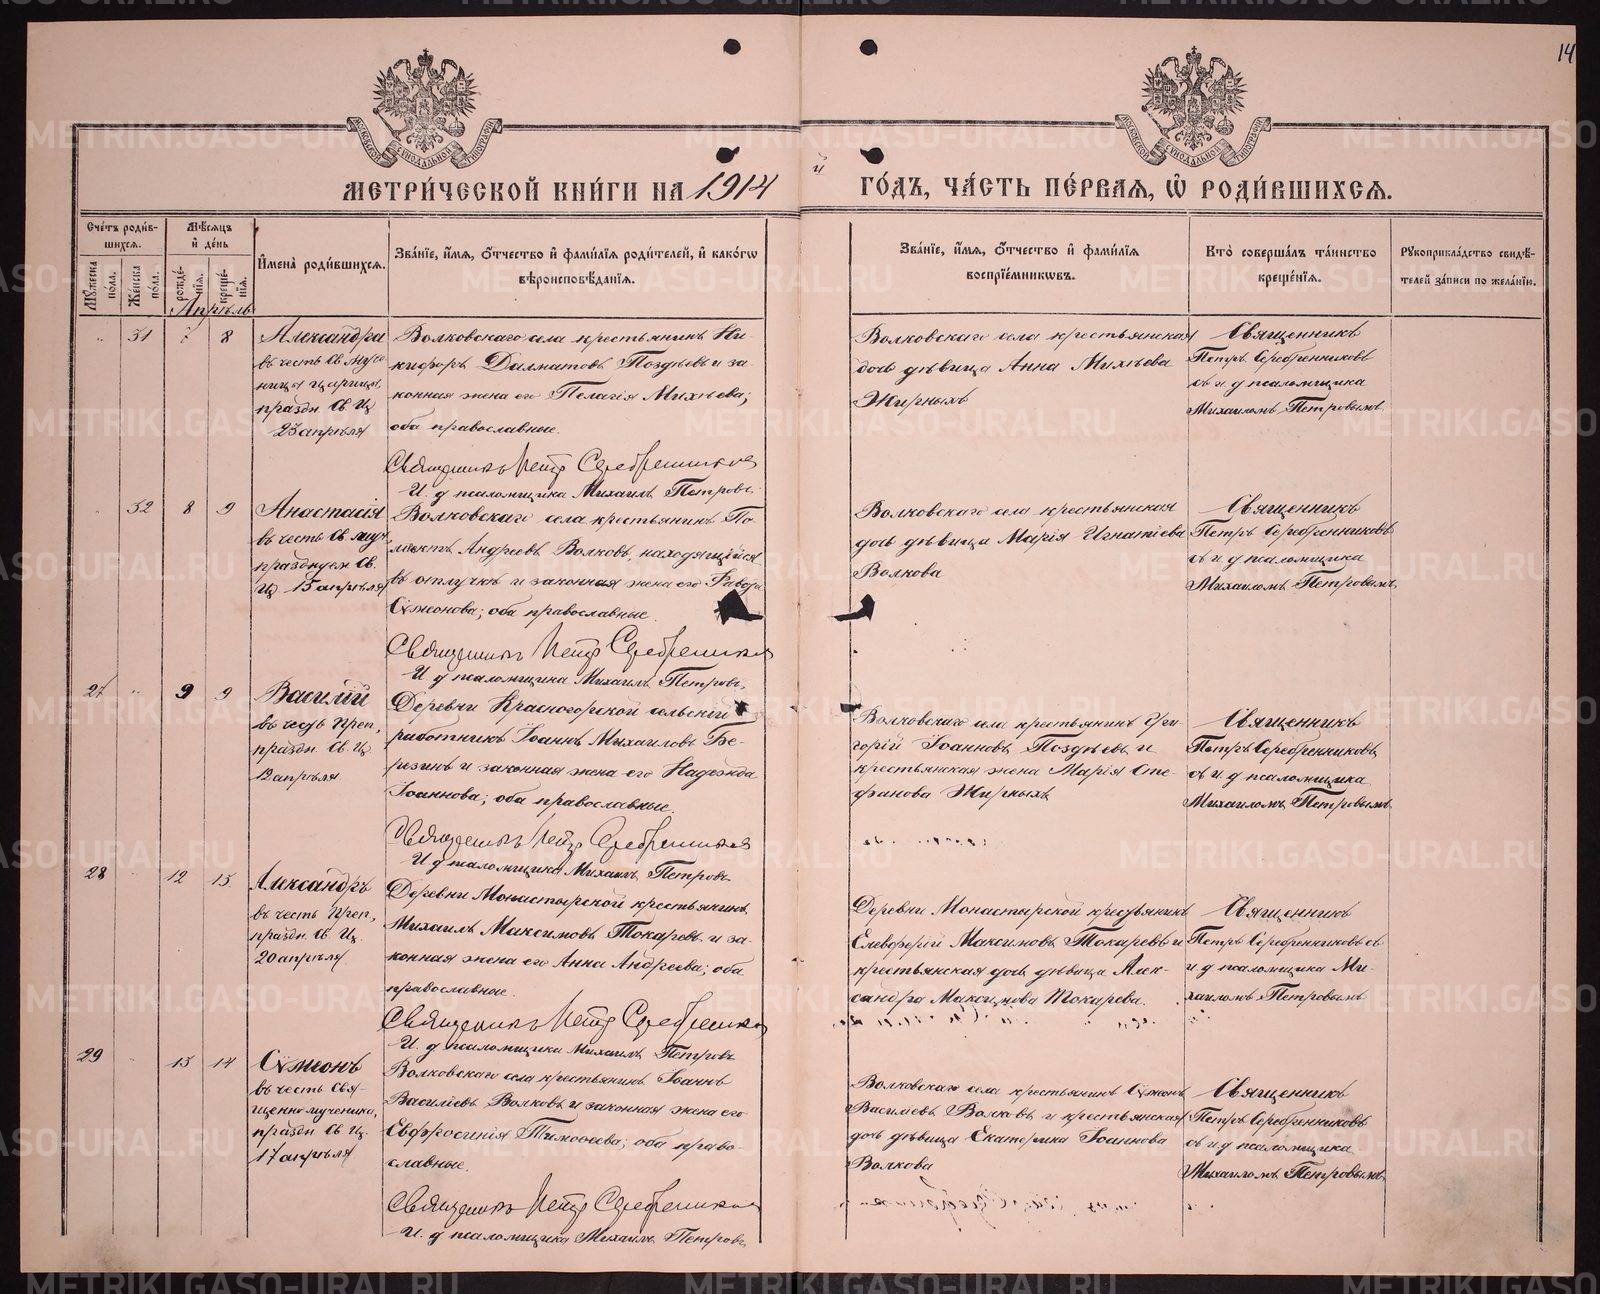 14
МЕТРИ́ЧЕСКОЙ КНИ́ГИ НА 1914 й ГО́ДЪ, ЧА́СТЬ ПЕ́РВАЯ, Ѡ҆ РОДИ́ВШИХСЯ.
Сче́тъ роди́в-
шихся.
Мꙋ́жеска по́ла.
Же́нска по́ла.
Мѣ́сяцъ
и҆ де́нь
рожде́нїя.
креще́нїя.
И҆мена̀ роди́вшихся.
Зва́нїе, и҆́мя, ѻ҆́тчество и҆ фами́лїя роди́телей, и҆ како́гѡ
вѣроисповѣ́данїя.
Зва́нїе, и҆́мя, ѻ҆́тчество и҆ фами́лїя
воспрїе́мниковъ.
Кто̀ соверша́лъ та́инство
креще́нїя.
Рꙋкоприкла́дство свидѣ́-
телей за́писи по жела́нїю.
Апрѣль
31 7 8
Александра
въ честь Св. муче
ницы царицы
праздн. Св. Ц.
23 апрѣля
Волковскаго села крестьянинъ Ни-
кифоръ Далматовъ Поздѣевъ и за
конная жена его Пелагія Михѣева;
оба православные.
Священникъ Петръ Серебренниковъ
И. д псаломщика Михаилъ Петровъ.
Волковскаго села крестьянская
дочь дѣвица Анна Михѣева
Жирныхъ
Священникъ
Петръ Серебренниковъ
съ и. д псаломщика
Михаиломъ Петровымъ.
32 8 9
Анастасія
въ честь Св. муч.
празднуем. Св.
Ц. 15 апрѣля
Волковскаго села крестьянинъ По-
ліектъ Андреевъ Волковъ, находящійся
въ отлучкѣ и законная жена его
Сѵмеонова; оба православные.
Священникъ Петръ Серебренниковъ
И. д псаломщика Михаилъ Петровъ.
Волковскаго села крестьянская
дочь дѣвица Марія Игнатіева
Волкова
Священникъ
Петръ Серебренниковъ
съ и. д псаломщика
Михаиломъ Петровымъ.
27 9 9
Василій
въ честь Преп.,
праздн. Св. Ц.
12 апрѣля
Деревни Красногорской сельскій
работникъ Іоаннъ Михаиловъ Бе-
резинъ и законная жена его Надежда
Іоаннова; оба православные.
Священникъ Петръ Серебренниковъ
И. д псаломщика Михаилъ Петровъ.
Волковскаго села крестьянинъ Гри-
горій Іоанновъ Поздѣевъ и
крестьянская жена Марія Сте-
фанова Жирныхъ
Священникъ
Петръ Серебренниковъ
съ и. д псаломщика
Михаиломъ Петровымъ.
28 12 13
Александръ
въ честь Преп.,
праздн. Св. Ц.
20 апрѣля
Деревни Монастырской крестьянинъ
Михаилъ Максимовъ Токаревъ и за-
конная жена его Анна Андреева; оба
православные.
Священникъ Петръ Серебренниковъ
И. д псаломщика Михаилъ Петровъ
Деревни Монастырской крестьянинъ
Елевферій Максимовъ Токаревъ и
крестьянская дочь дѣвица Алек-
сандра Максимова Токарева.
Священникъ
Петръ Серебренниковъ съ
и д псаломщика Ми-
хаиломъ Петровымъ
29 13 14
Сѵмеонъ
въ честь Свя-
щенномученика,
праздн. Св. Ц.
17 апрѣля
Волковскаго села крестьянинъ Іоаннъ
Василіевъ Волковъ и законная жена его
Евфросинія Тимоѳеева; оба право
славные.
Священникъ Петръ Серебренниковъ
И. д псаломщика Михаилъ Петровъ.
Волковскаго села крестьянинъ Сѵмеонъ
Василіевъ Волковъ и крестьянская
дочь дѣвица Екатерина Іоаннова
Волкова
Священникъ
Петръ Серебренниковъ
съ и. д псаломщика
Михаиломъ Петровымъ.
METRIKI.GASO-URAL.RU